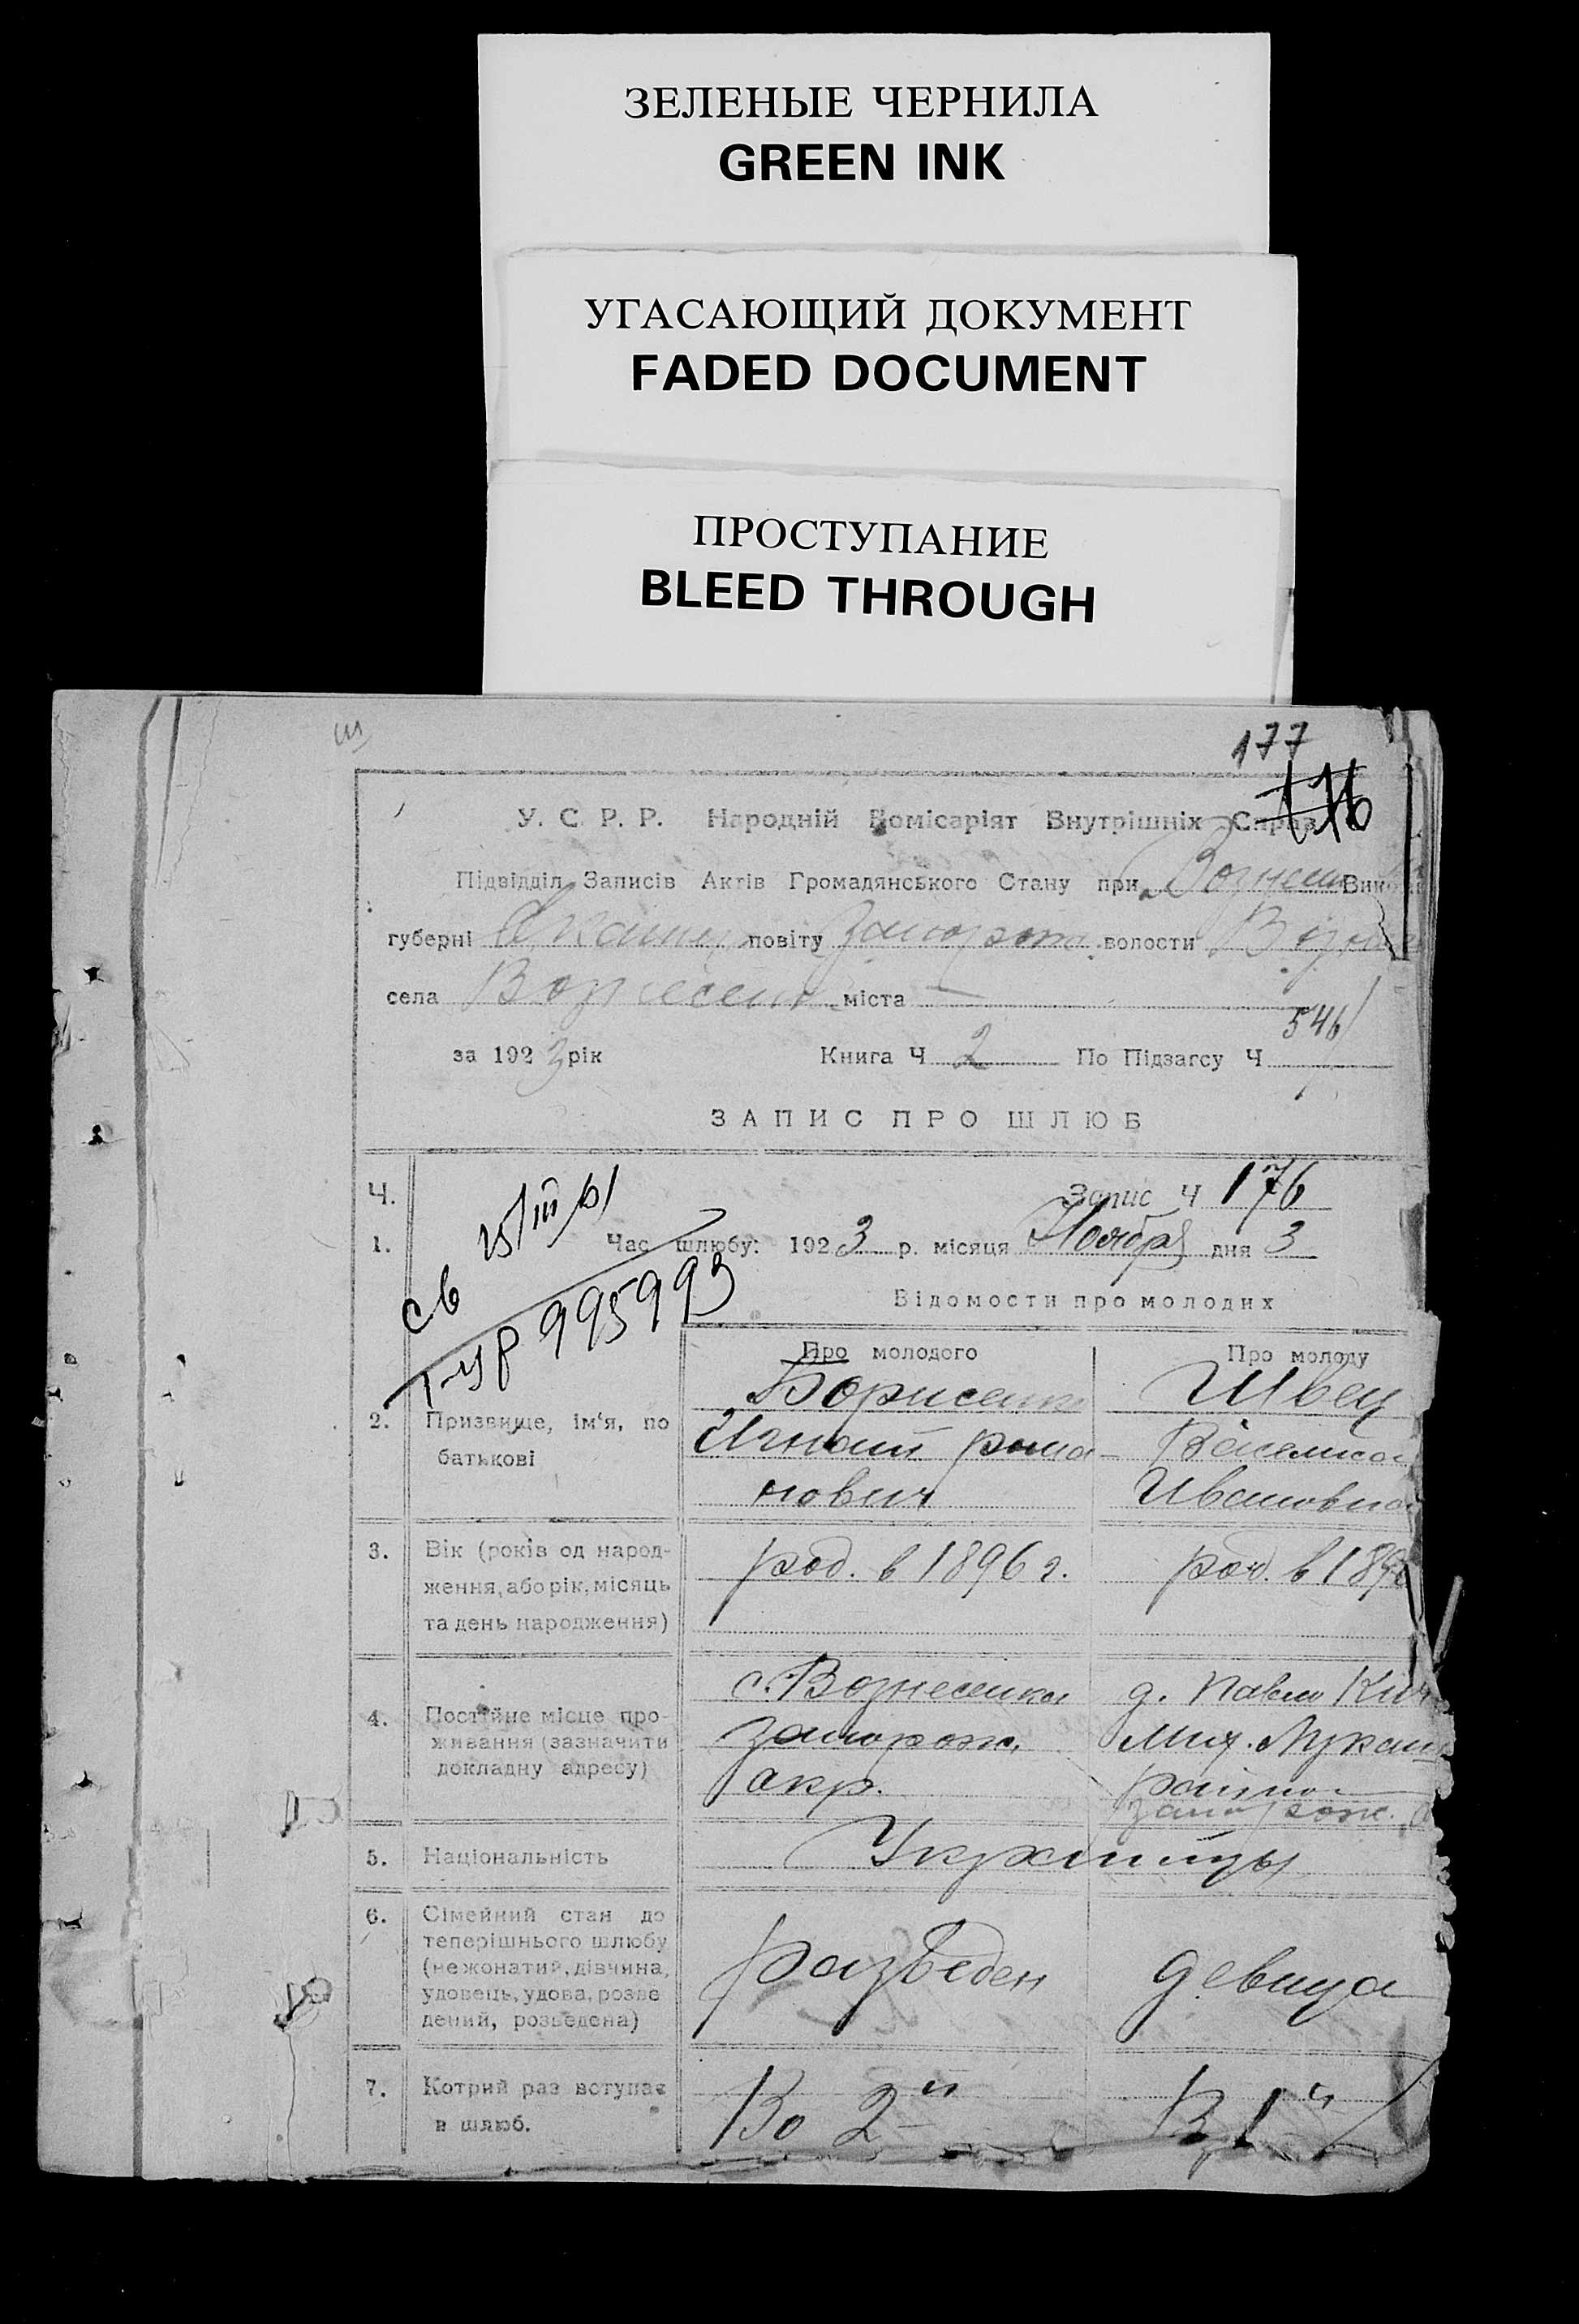 ЗЕЛЕНЫЕ ЧЕРНИЛА
GREEN INK
УГАСАЮЩИЙ ДОКУМЕНТ
FADED DOCUMENT
ПРОСТУПАНИЕ
BLEED THROUGH
177
176
У. С. Р. Р. Народній Комісаріят Внутрішніх Справ
Підвідділ Записів Актів Громадянського Стану при Вик
губерні повіту Запорож. волости
села Вознесенк міста —
546
за 1923 рік Книга Ч 2 По Підзагсу Ч
ЗАПИС ПРО ШЛЮБ
Ч. Запис Ч 176
1. Час шлюбу: 1923 р. місяця Ноября дня 3
св
995993
Відомости про молодих
Про молодого Про молоду
Борисенко Швец
2. Призвище, ім'я, по батькові
Игнат Рома- Василиса
нович Ивановна
3. Вік (років од народ-
ження, або рік, місяць
та день народження)
род. в 1896 г. род. в 189
4. Постійне місце про-
живання (зазначити
докладну адресу)
с. Вознесенка д. Павло Кич
Запорож. Мих. Лукаш
окр. район
Запорож.
5. Національність Украинцы
6. Сімейний стан до
теперішнього шлюбу
(нежонатий, дівчина,
удовець, удова, розве
дений, розведена)
разведен девица
7. Котрий раз вступає
в шлюб.
Во 2й В 1й